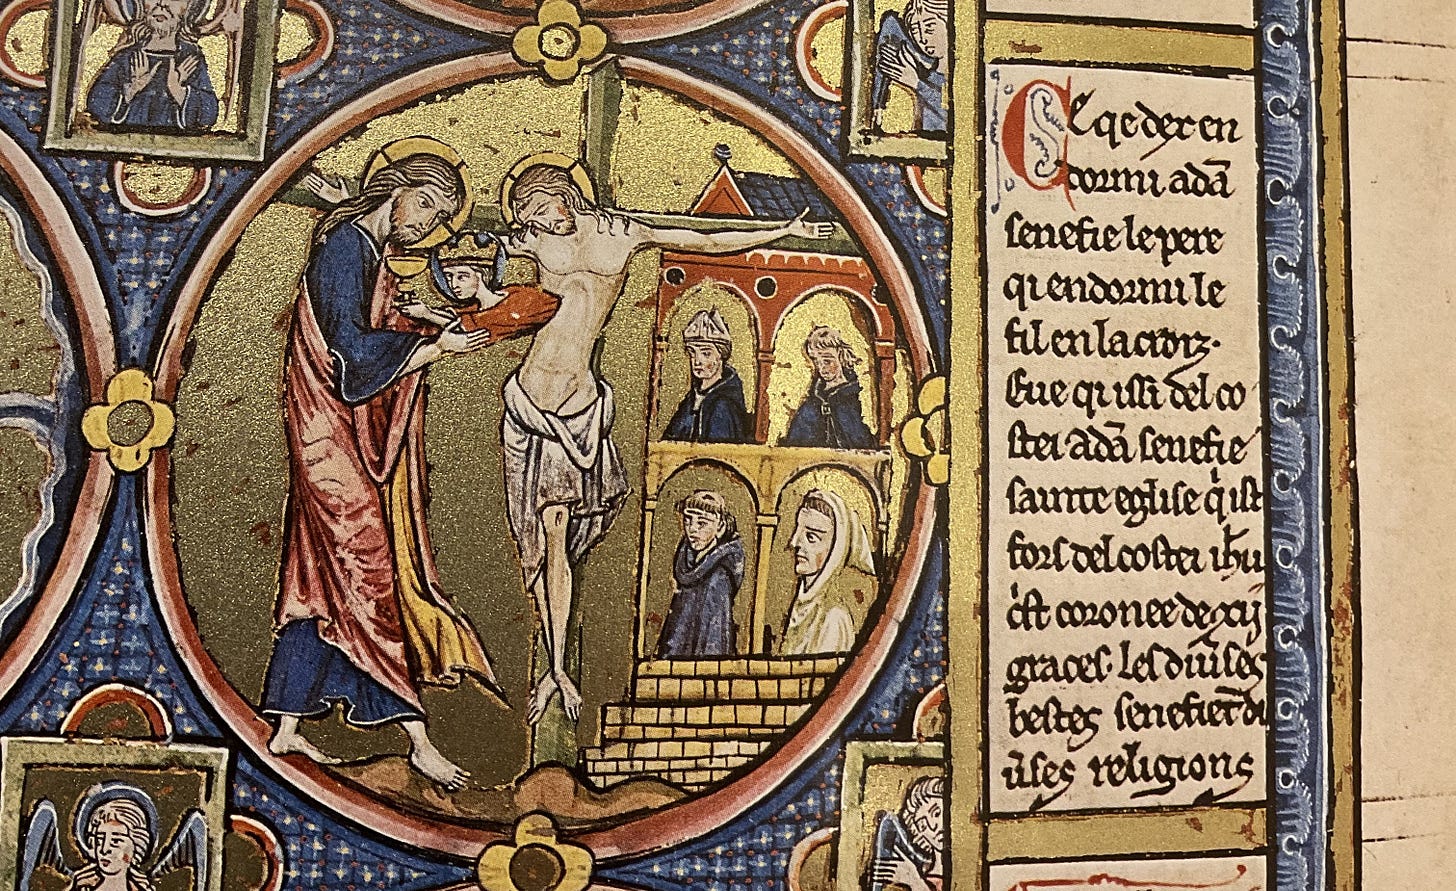 Ce qe dex en
dormi adā
senefie le pere
qi endormi le
fil en la croiz.
Eve qi issi del co
stei adā senefie
sainte eglise q'ist
fors del costei ihu
c'st coronee de xij
graces. Les div'ses
bestes senefiēt di
v'ses religions